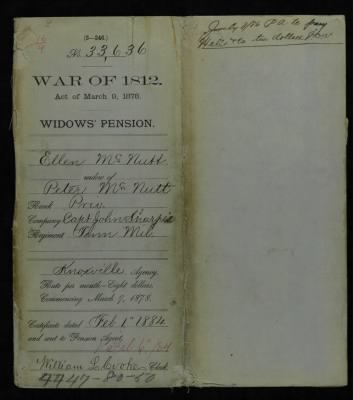 (3-246.)
No. 33,636
WAR OF 1812.
Act of March 9, 1878.
WIDOWS' PENSION.
Ellen McNutt
widow of
Peter McNutt
Rank Priv.
Company Capt John Sharp's
Regiment Tenn Mil.
Knoxville Agency.
Rate per month—Eight dollars,
Commencing March 9, 1878.
Certificate dated Feb 1" 1884
and sent to Pension Agent,
William L. Cooke Clerk.
4447-80-50
P A to pay
two dollars